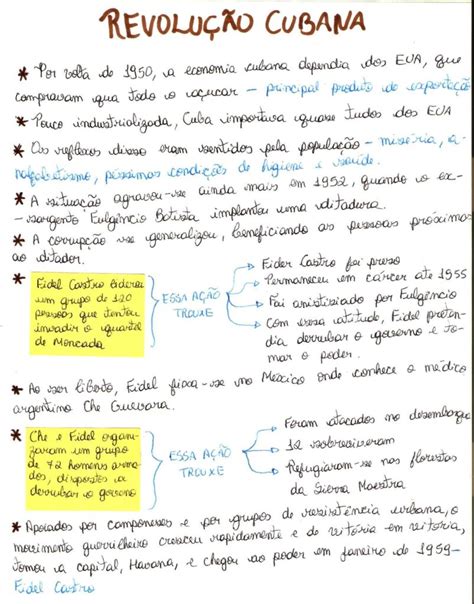 REVOLUÇÃO CUBANA
* Por volta de 1950, a economia cubana dependia dos EUA, que
compravam qua todo o açucar - principal produto de exportação
* Pouco industrializada, Cuba importava quase tudos dos EUA
* Os reflexos disso eram sentidos pela população - miséria, a-
nalfabetismo, péssimas condições de higiene e saúde.
* A situação agravou-se ainda mais em 1952, quando o ex-
-sargento Fulgêncio Batista implantou uma ditadura.
* A corrupção se generalizou, beneficiando as pessoas próximas
ao ditador.
* Fidel Castro liderou
um grupo de 120
pessoas que tentou
invadir o quartel
de Moncada
ESSA AÇÃO
TROUXE
Fidel Castro foi preso
Permaneceu em cárcer até 1955
Foi anistiado por Fulgêncio
Com essa atitude, Fidel preten-
dia derrubar o governo e to-
mar o poder.
* Ao ser liberto, Fidel fixa-se no México onde conhece o médico
argentino Che Guevara.
* Che e Fidel organi-
zaram um grupo
de 72 homens arma-
dos, dispostos a
derrubar o governo
ESSA AÇÃO
TROUXE
Foram atacados no desembarque
12 sobreviveram
Refugiaram-se nas florestas
da Sierra Maestra
* Apoiados por camponeses e por grupos de resistência urbana, o
movimento guerrilheiro cresceu rapidamente e de vitória em vitória,
tomou a capital, Havana, e chegou ao poder em janeiro de 1959-
Fidel Castro